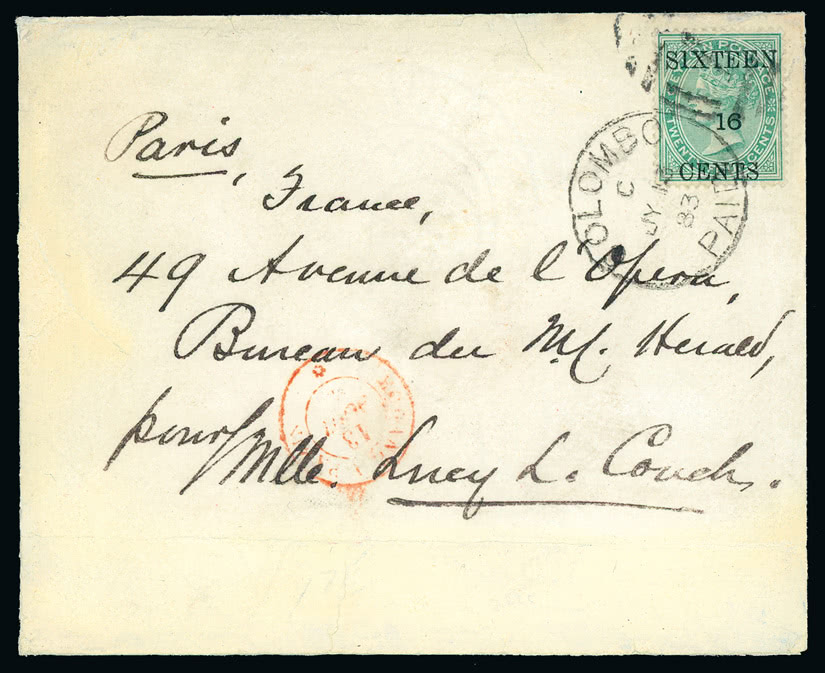 SIXTEEN
16
CENTS
COLOMBO
C
83
PAID
Paris,
France,
49 Avenue de l'Opera,
Bureau du N.Y. Herald,
pour Mlle. Lucy L. Couch.